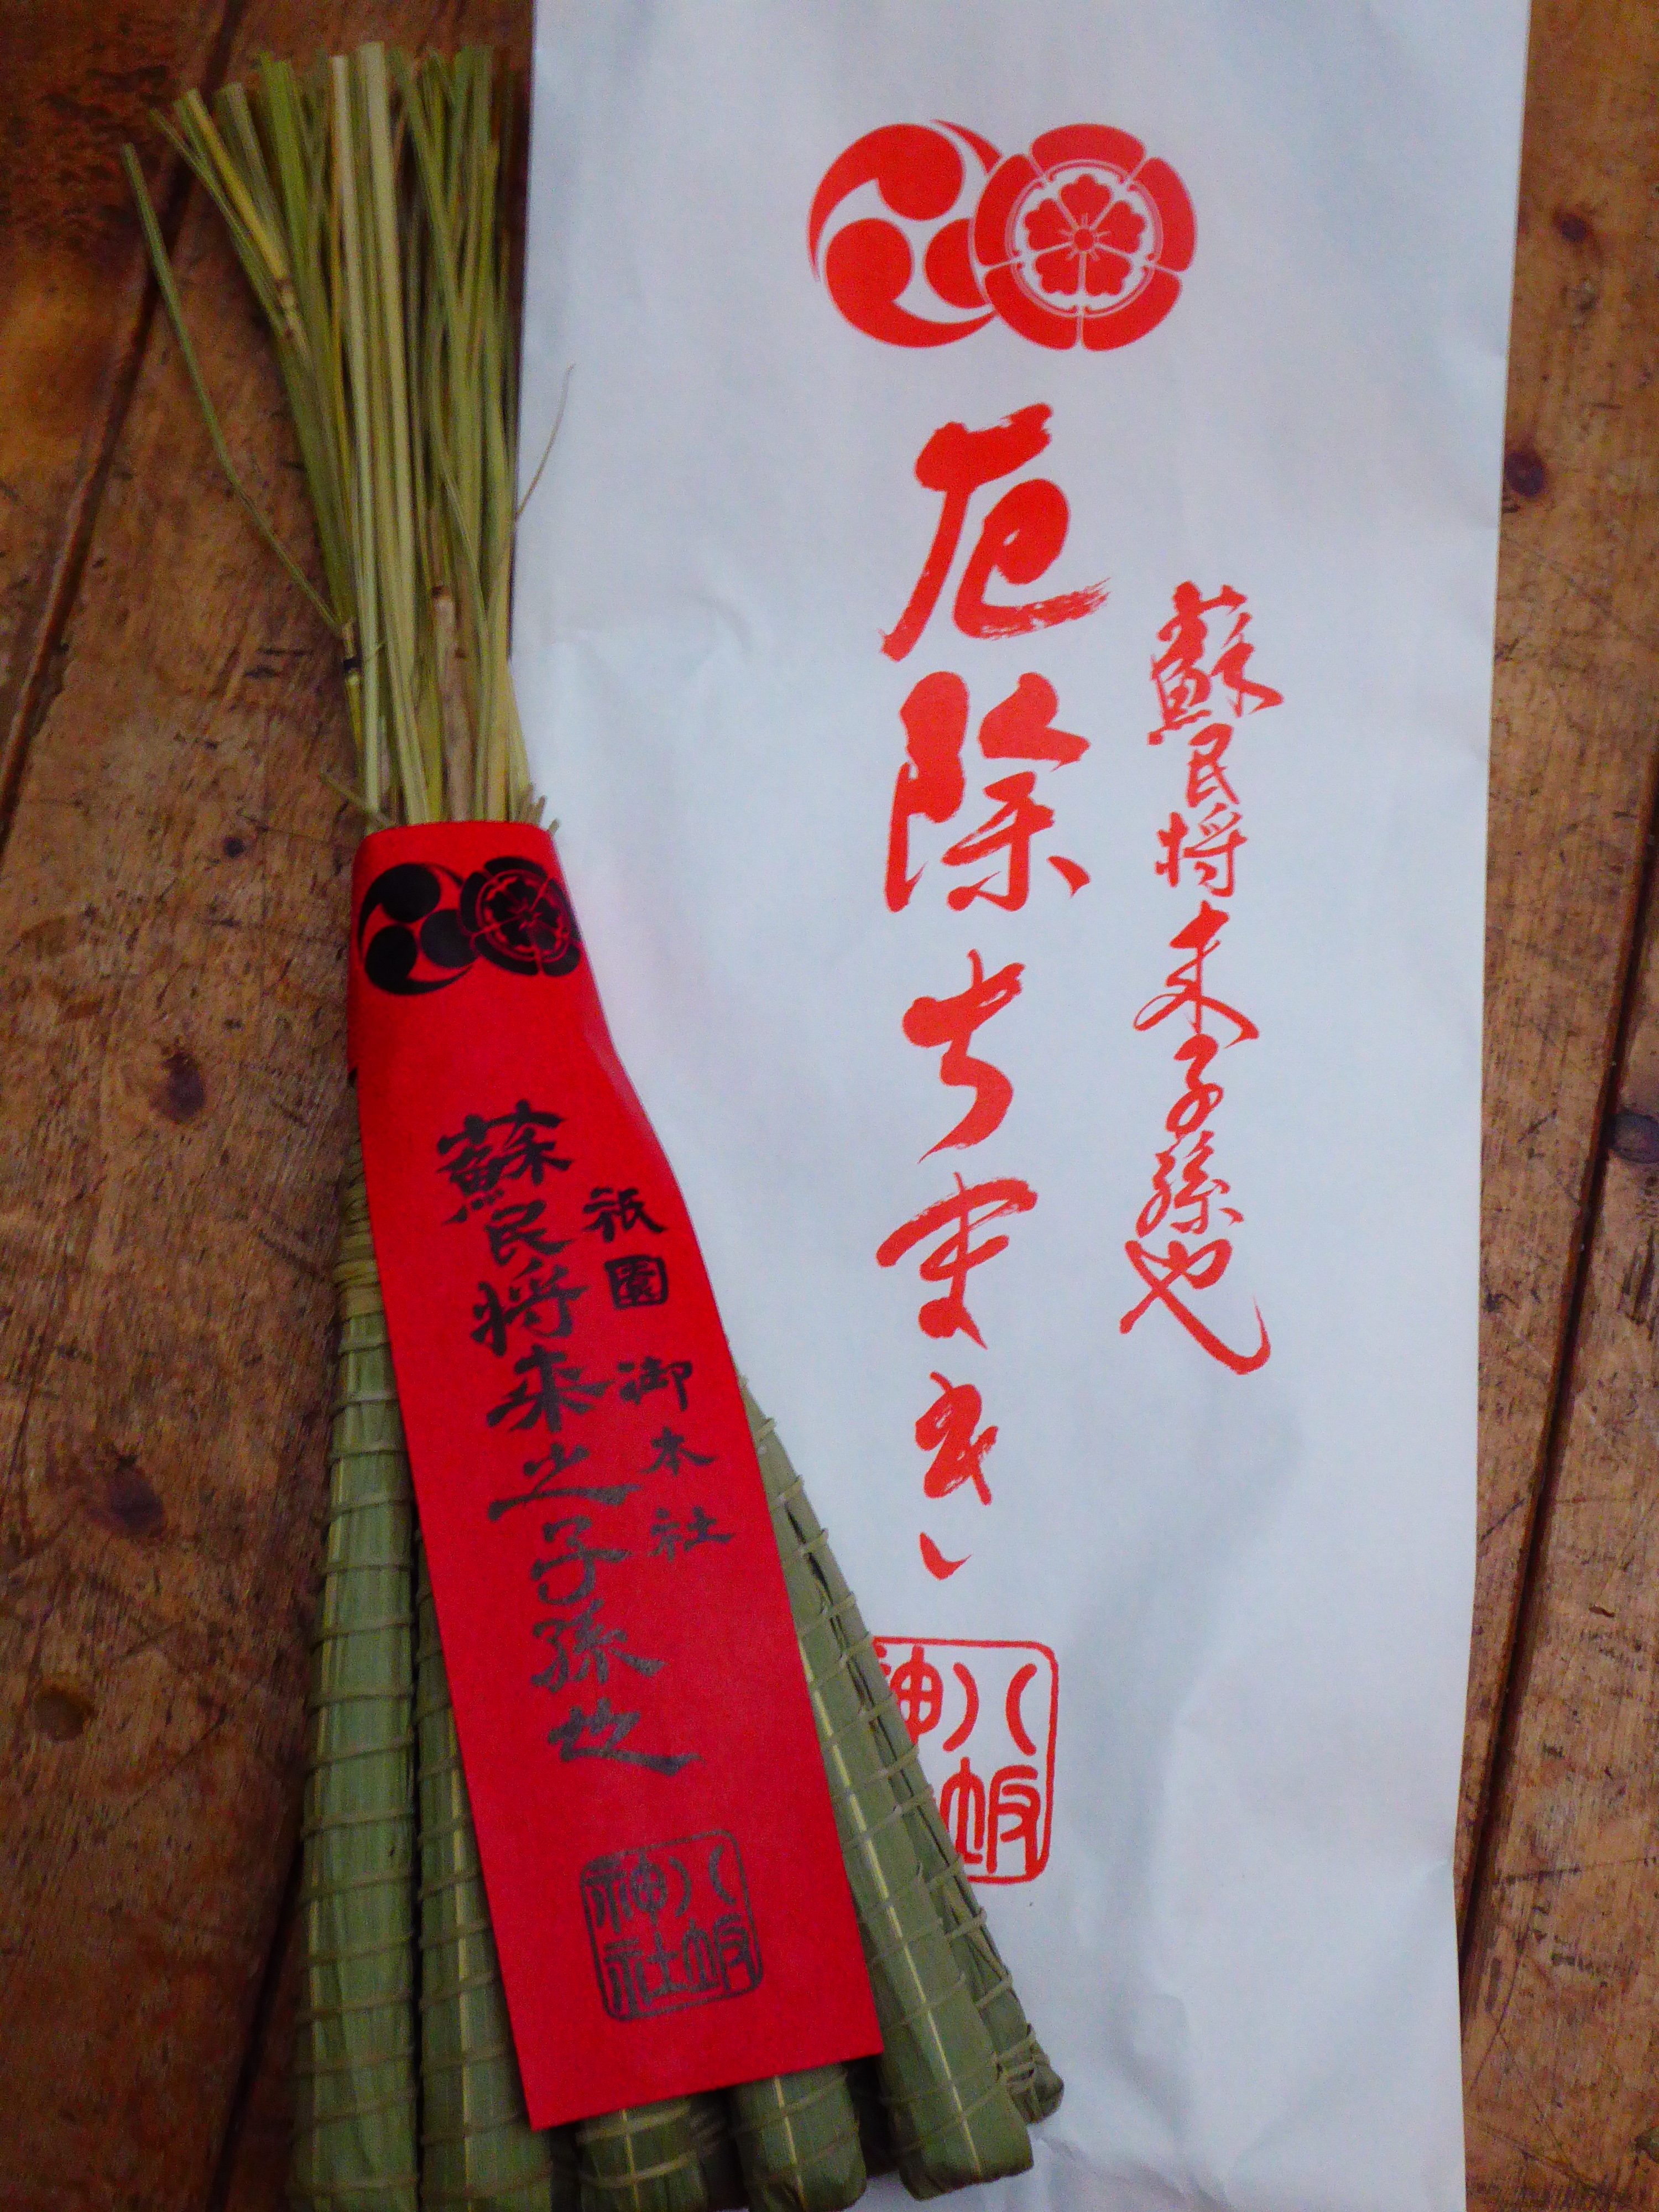 蘇民将来子孫也
厄除ちまき
八坂
神
祇園御本社
蘇民将来之子孫也
八坂
神社